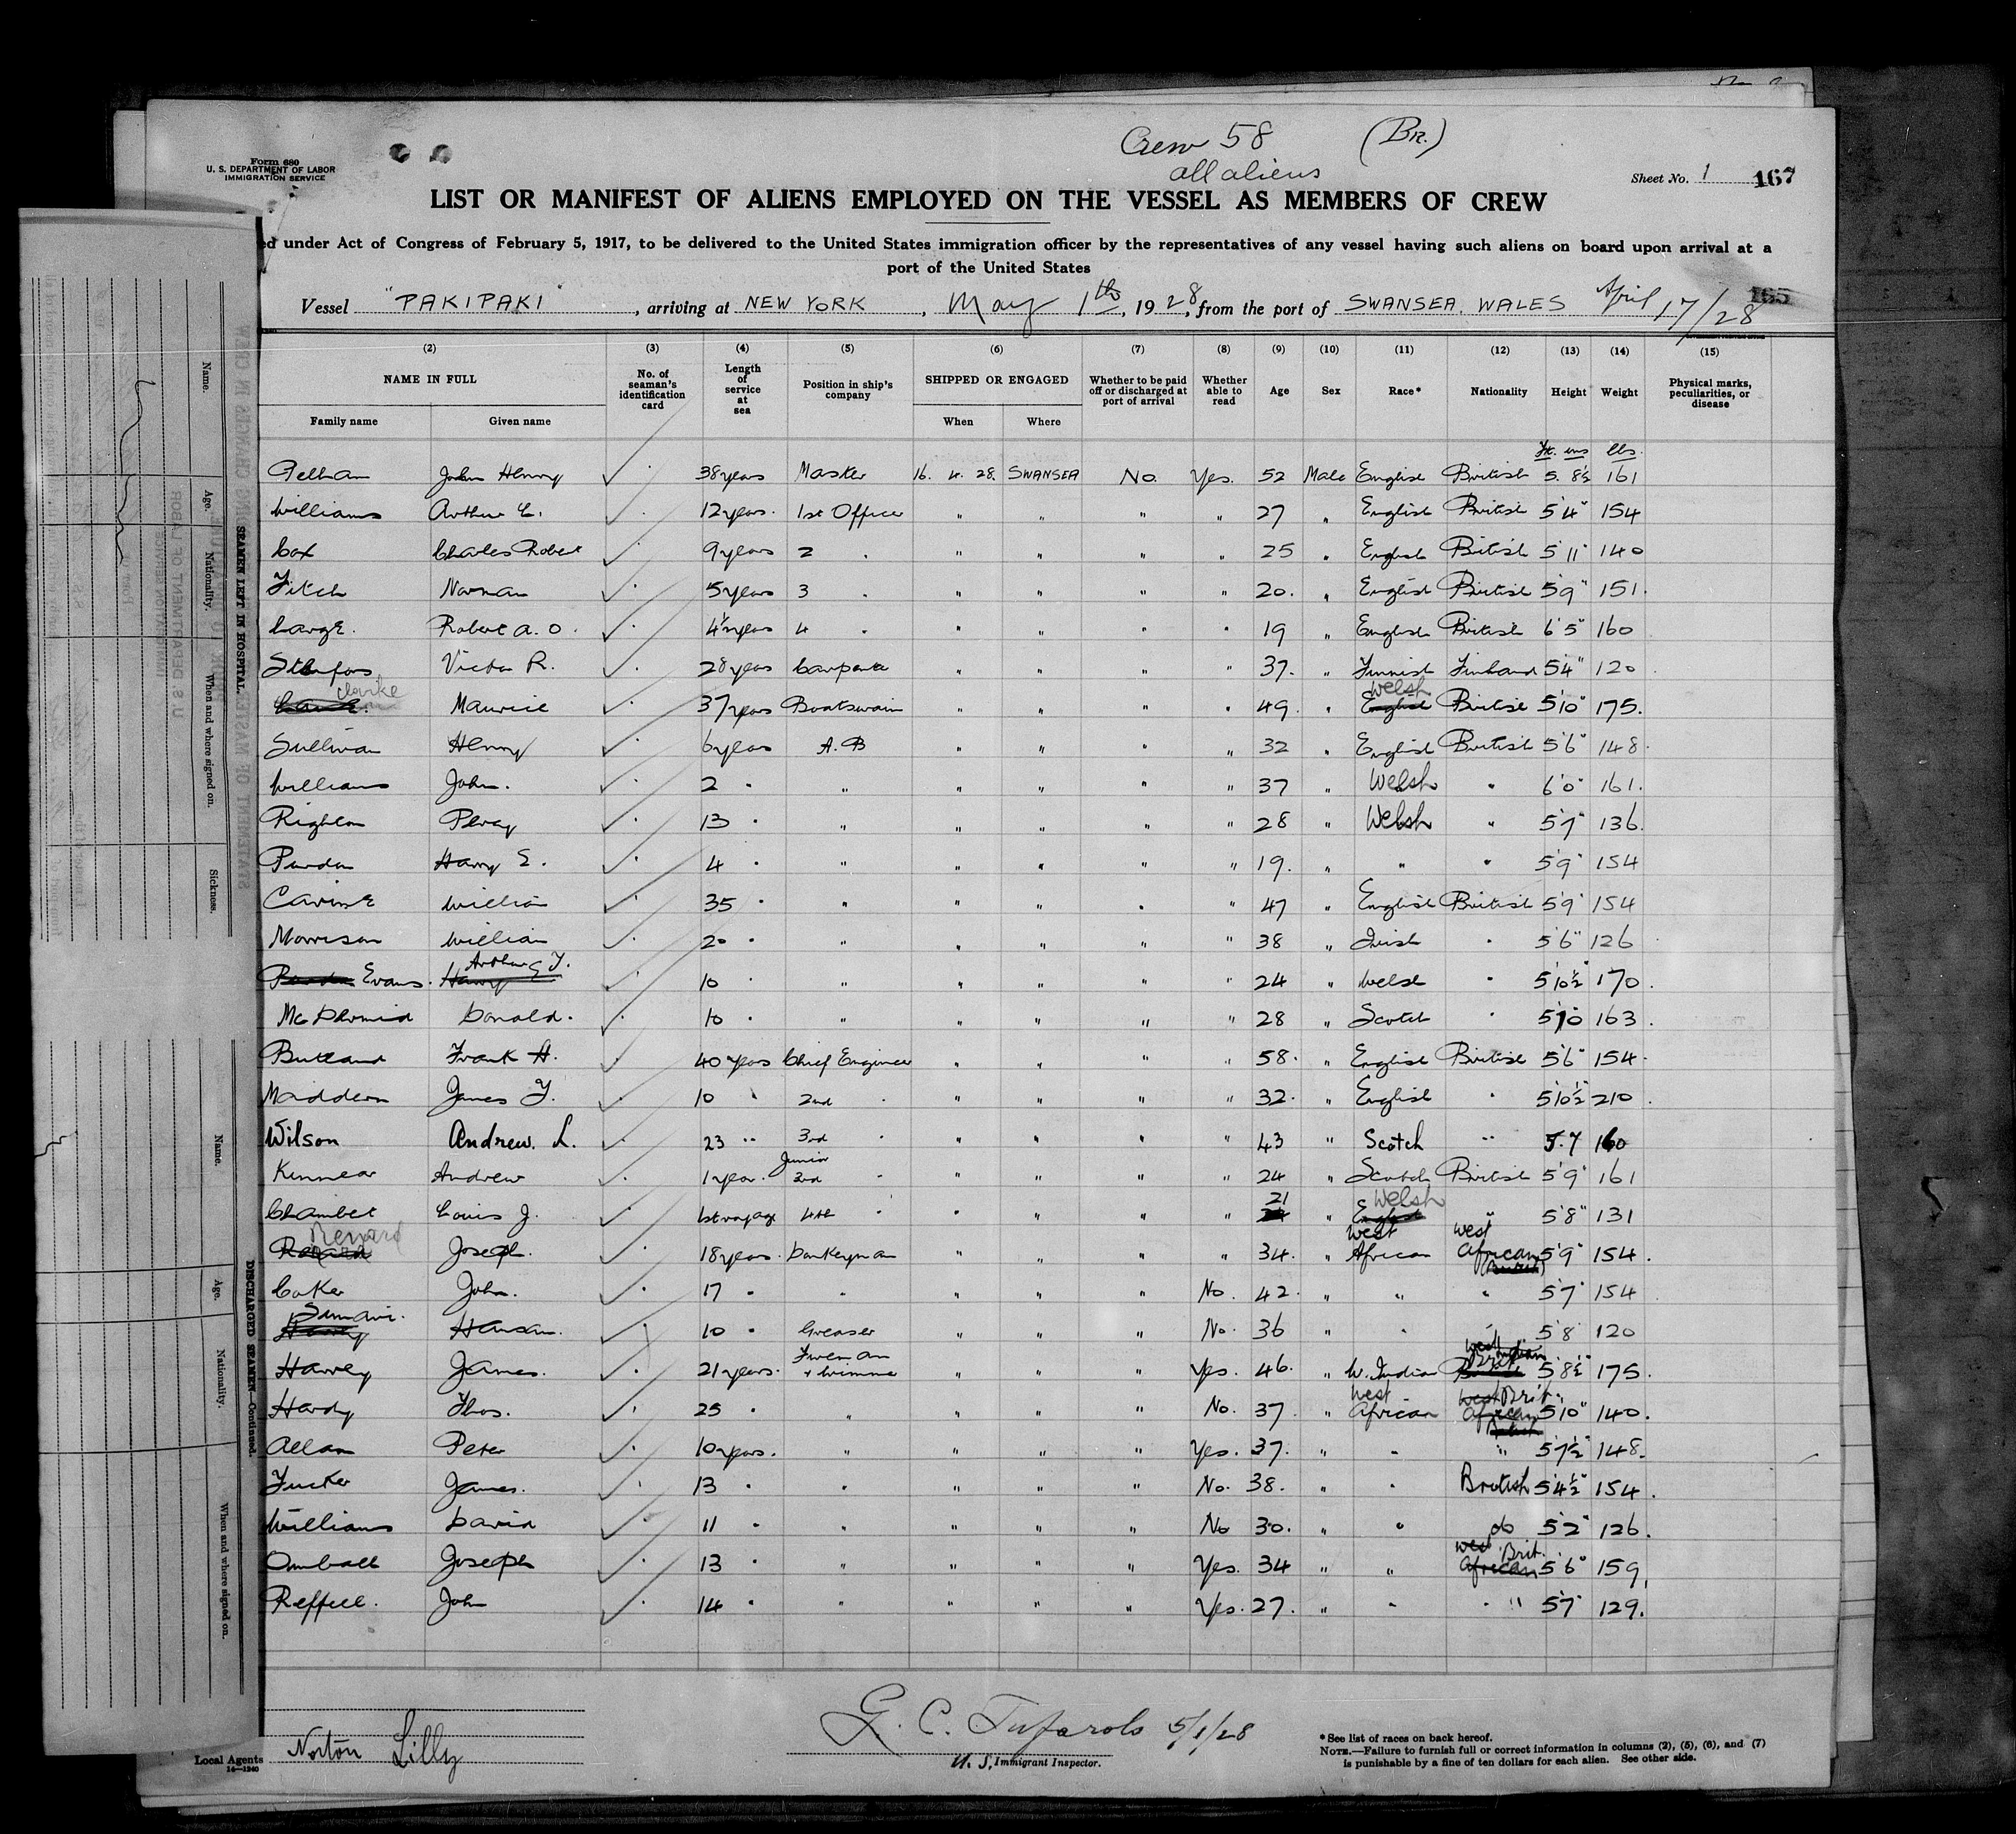 Crew 58 (Br.)
all aliens
Form 680
U. S. DEPARTMENT OF LABOR
IMMIGRATION SERVICE
Sheet No. 1 167
LIST OR MANIFEST OF ALIENS EMPLOYED ON THE VESSEL AS MEMBERS OF CREW
ed under Act of Congress of February 5, 1917, to be delivered to the United States immigration officer by the representatives of any vessel having such aliens on board upon arrival at a
port of the United States
165
Vessel "PAKIPAKI", arriving at NEW YORK, May 1th, 1928, from the port of SWANSEA. WALES April 17/28
(2) (3) (4) (5) (6) (7) (8) (9) (10) (11) (12) (13) (14) (15)
NAME IN FULL No. of seaman's identification card Length of service at sea Position in ship's company SHIPPED OR ENGAGED Whether to be paid off or discharged at port of arrival Whether able to read Age Sex Race* Nationality Height Weight Physical marks, peculiarities, or disease
Family name Given name When Where
Ft. ins lbs.
Pelham John Henry ✓ 38 years Master 16. 4. 28. SWANSEA No. Yes. 52 Male English British 5. 8½ 161
Williams Arthur E. ✓ 12 years. 1st Officer " " " " 27 " English British 5'4" 154
Cox Charles Robert ✓ 9 years 2 " " " " " 25 " English British 5'11" 140
Fitch Norman ✓ 5 years 3 " " " " " 20. " English British 5'9" 151.
Large. Robert A. O. ✓ 4½ years 4 " " " " " 19 " English British 6'5" 160
Victor R. ✓ 28 years " " " " 37. " Finnish Finland 5'4" 120
Clarke Maurice ✓ 37 years Boatswain " " " " 49. " Welsh British 5'10" 175.
Sullivan Henry ✓ 6 years A.B " " " " 32 " English British 5'6" 148.
Williams John. ✓ 2 " " " " " " 37 " Welsh " 6'0" 161.
Righton Percy ✓ 13 " " " " " " 28 " Welsh " 5'7" 136.
Purdon Harry E. ✓ 4 " " " " " " 19. " " " 5'9" 154
William ✓ 35 " " " " " " 47 " English British 5'9" 154
Morrison William ✓ 20 " " " " " " 38 " Irish " 5'6" 126
Evans. Arthur G. ✓ 10 " " " " " " 24 " Welsh " 5'10½" 170.
McDermid Donald. ✓ 10 " " " " " " 28 " Scotch " 5'10 163.
Butland Frank H. ✓ 40 years Chief Engineer " " " " 58. " English British 5'6" 154.
Maddern James T. ✓ 10 " 2nd " " " " " 32. " English " 5'10½" 210.
Wilson Andrew. L. ✓ 23 " 3rd " " " " " 43 " Scotch " 5.7 160
Kinnear Andrew ✓ 1 year. Junior 3rd " " " " " 24 " Scotch British 5'9" 161
Louis J. ✓ 1st voyage 4th " " " " 21 " Welsh " 5'8" 131
Renard Joseph. ✓ 18 years. Donkeyman " " " " 34. " West African West African 5'9" 154.
Coker John. ✓ 17 " " " " " No. 42. " " " 5'7" 154
Hansan. ✓ 10 " Greaser " " " No. 36 " " " 5'8 120
Harvey James. ✓ 21 years. Fireman + trimmer " " " Yes. 46. " W. Indian West Indian Brit 5'8½" 175.
Hardy Thos. ✓ 25 " " " " " No. 37. " West African Brit. 5'10" 140.
Allan Peter ✓ 10 years. " " " " Yes. 37. " " " 5'7½" 148.
Tucker James. ✓ 13 " " " " " No. 38. " " British 5'4½" 154.
Williams David ✓ 11 " " " " " No 30. " " do 5'2" 126.
Joseph ✓ 13 " " " " " Yes. 34 " " Brit. 5'6" 159.
Reffell. John ✓ 14 " " " " " Yes. 27. " " " 5'7" 129.
Norton Lilly
Local Agents
14—1240
G. C. Tufarolo 5/1/28
U. S. Immigrant Inspector.
*See list of races on back hereof.
NOTE.—Failure to furnish full or correct information in columns (2), (5), (6), and (7)
is punishable by a fine of ten dollars for each alien. See other side.
SEAMEN LEFT IN HOSPITAL.
Name. Age. Nationality. When and where signed on. Sickness.
DISCHARGED SEAMEN—Continued.
Name. Age. Nationality. When and where signed on.